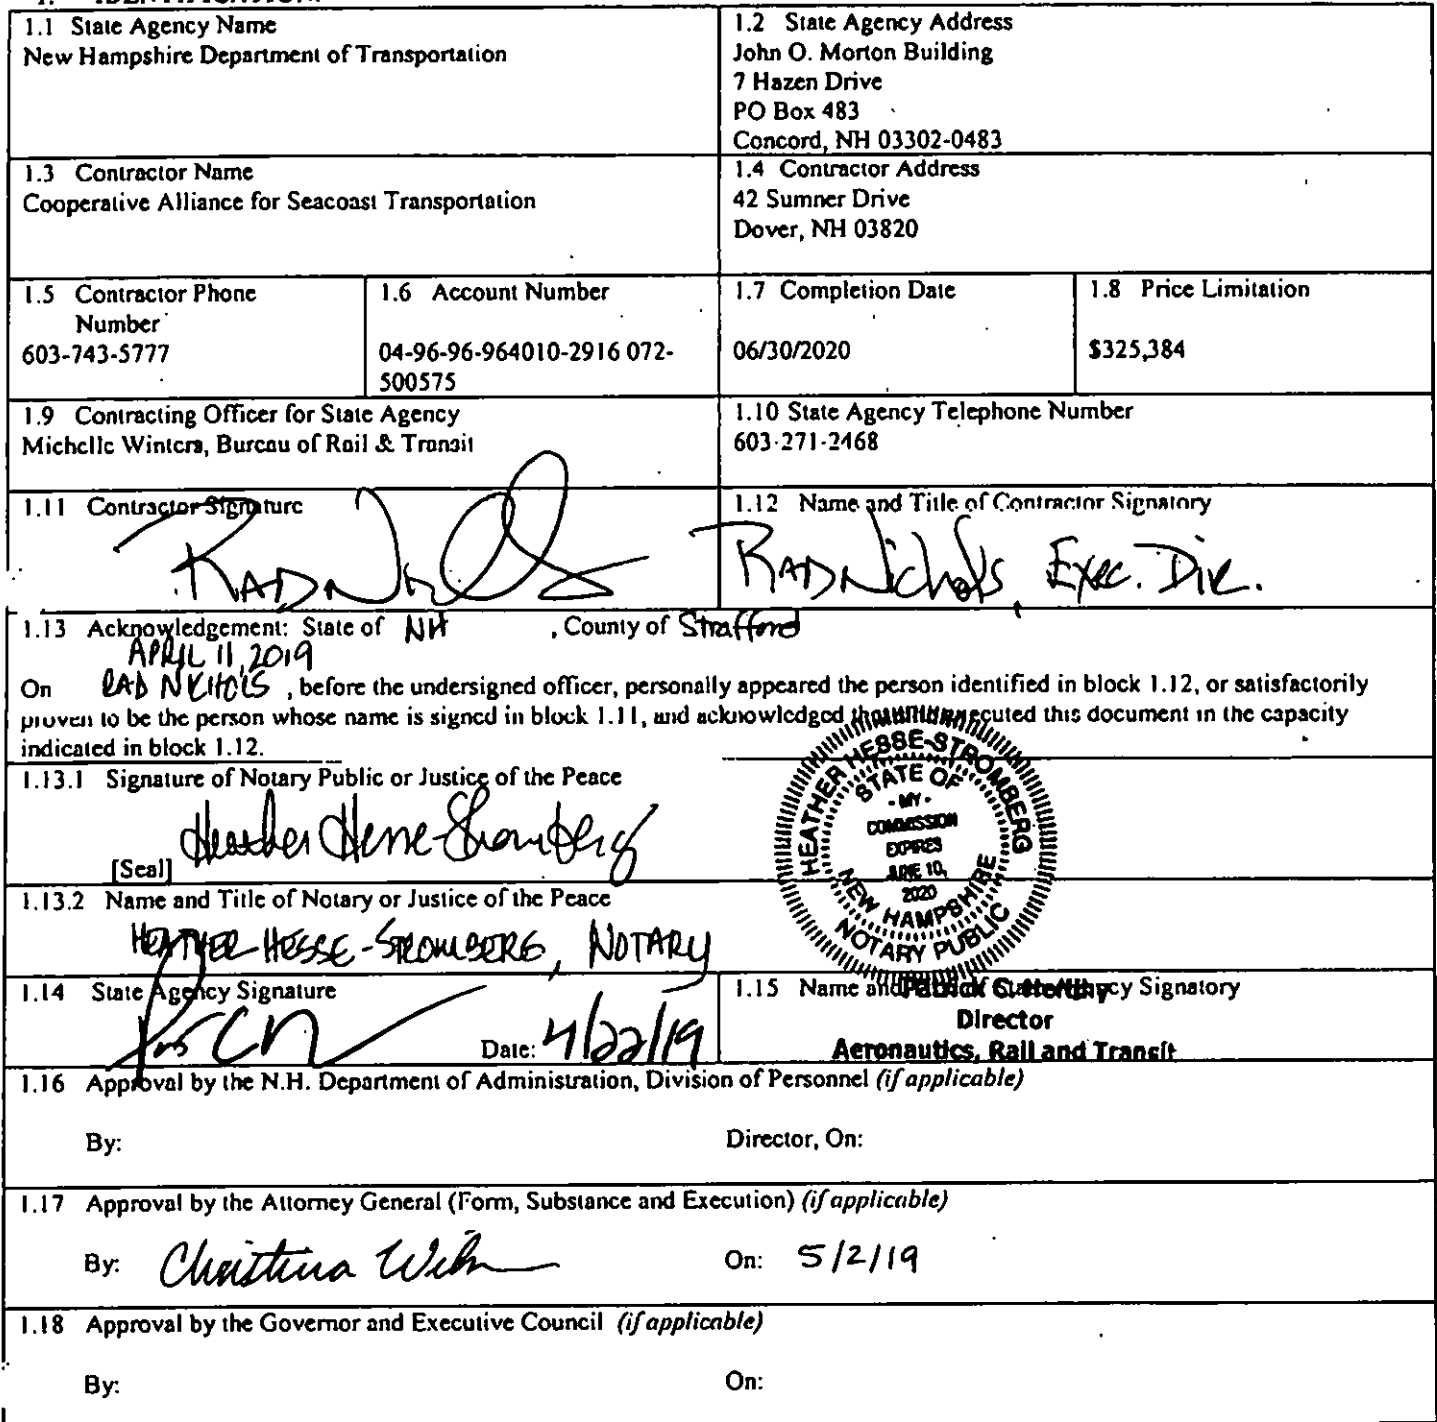 1.1 State Agency Name
New Hampshire Department of Transportation
1.2 State Agency Address
John O. Morton Building
7 Hazen Drive
PO Box 483
Concord, NH 03302-0483
1.3 Contractor Name
Cooperative Alliance for Seacoast Transportation
1.4 Contractor Address
42 Sumner Drive
Dover, NH 03820
1.5 Contractor Phone
Number
603-743-5777
1.6 Account Number
04-96-96-964010-2916 072-
500575
1.7 Completion Date
06/30/2020
1.8 Price Limitation
$325,384
1.9 Contracting Officer for State Agency
Michelle Winters, Bureau of Rail & Transit
1.10 State Agency Telephone Number
603-271-2468
1.11 Contractor Signature
RAD Nichols
1.12 Name and Title of Contractor Signatory
RAD Nichols, Exec. Dir.
1.13 Acknowledgement: State of NH , County of Strafford
APRIL 11, 2019
On RAD NICHOLS , before the undersigned officer, personally appeared the person identified in block 1.12, or satisfactorily
proven to be the person whose name is signed in block 1.11, and acknowledged executed this document in the capacity
indicated in block 1.12.
1.13.1 Signature of Notary Public or Justice of the Peace
Heather Hesse-Stromberg
[Seal]
HEATHER HESSE-STROMBERG
STATE OF
- MY -
COMMISSION
EXPIRES
JUNE 10,
2020
NEW HAMPSHIRE
NOTARY PUBLIC
1.13.2 Name and Title of Notary or Justice of the Peace
HEATHER HESSE-STROMBERG, NOTARY
1.14 State Agency Signature
Date: 4/22/19
1.15 Name and Signatory
Patrick
Director
Aeronautics, Rail and Transit
1.16 Approval by the N.H. Department of Administration, Division of Personnel (if applicable)
By:
Director, On:
1.17 Approval by the Attorney General (Form, Substance and Execution) (if applicable)
By: Christina
On: 5/2/19
1.18 Approval by the Governor and Executive Council (if applicable)
By:
On: